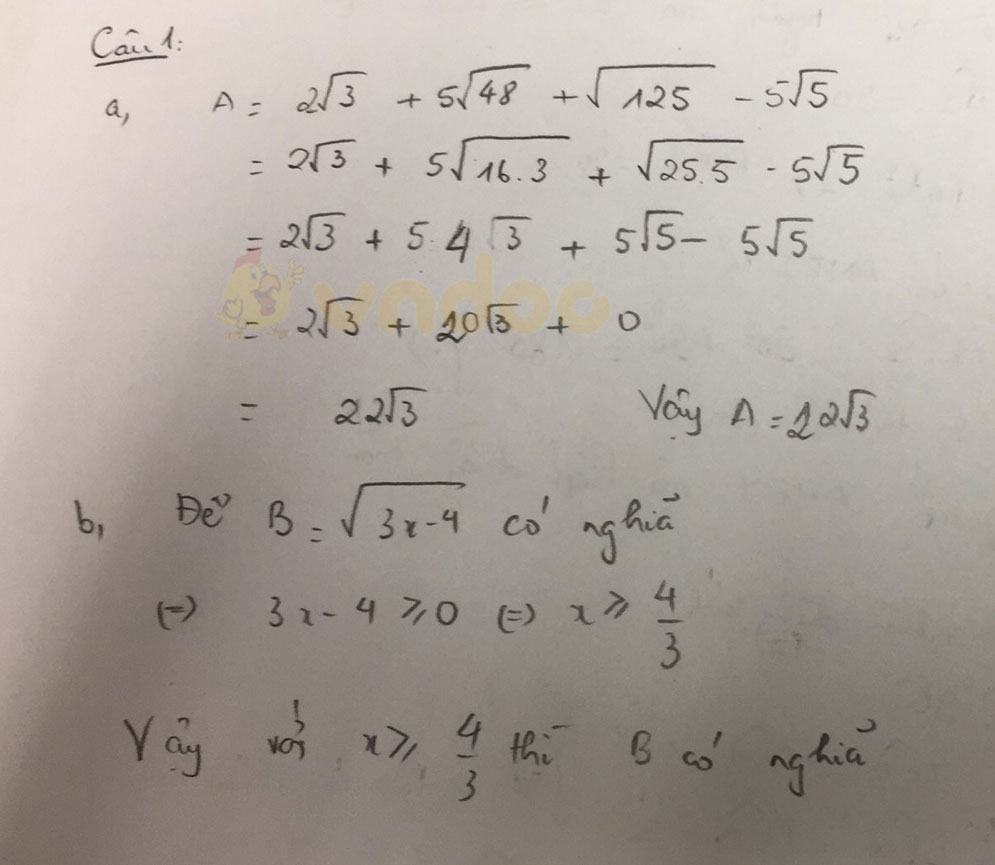 Câu 1:
a, A = 2√3 + 5√48 + √125 - 5√5
= 2√3 + 5√16.3 + √25.5 - 5√5
= 2√3 + 5.4√3 + 5√5 - 5√5
vndoc
= 2√3 + 20√3 + 0
= 22√3 Vậy A = 22√3
b, Để B = √3x-4 có nghiã
(=) 3x - 4 ⩾ 0 (=) x ⩾ 4/3
Vậy với x ⩾ 4/3 thì B có nghiã